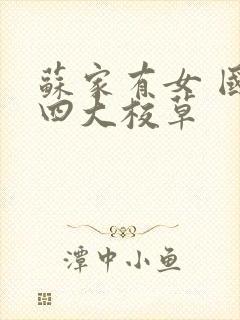 蘇家有女 國
四大校草
潭中小鱼